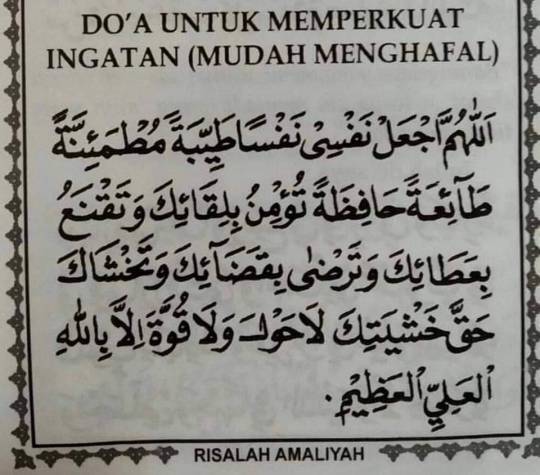 DO'A UNTUK MEMPERKUAT
INGATAN (MUDAH MENGHAFAL)
اَللّٰهُمَّ اجْعَلْ نَفْسِيْ نَفْسًا طَيِّبَةً مُطْمَئِنَّةً
طَآئِعَةً حَافِظَةً تُؤْمِنُ بِلِقَائِكَ وَتَقْنَعُ
بِعَطَائِكَ وَتَرْضٰى بِقَضَآئِكَ وَتَخْشَاكَ
حَقَّ خَشْيَتِكَ لَاحَوْلَ وَلَا قُوَّةَ اِلَّا بِاللّٰهِ
الْعَلِيِّ الْعَظِيْمِ.
RISALAH AMALIYAH